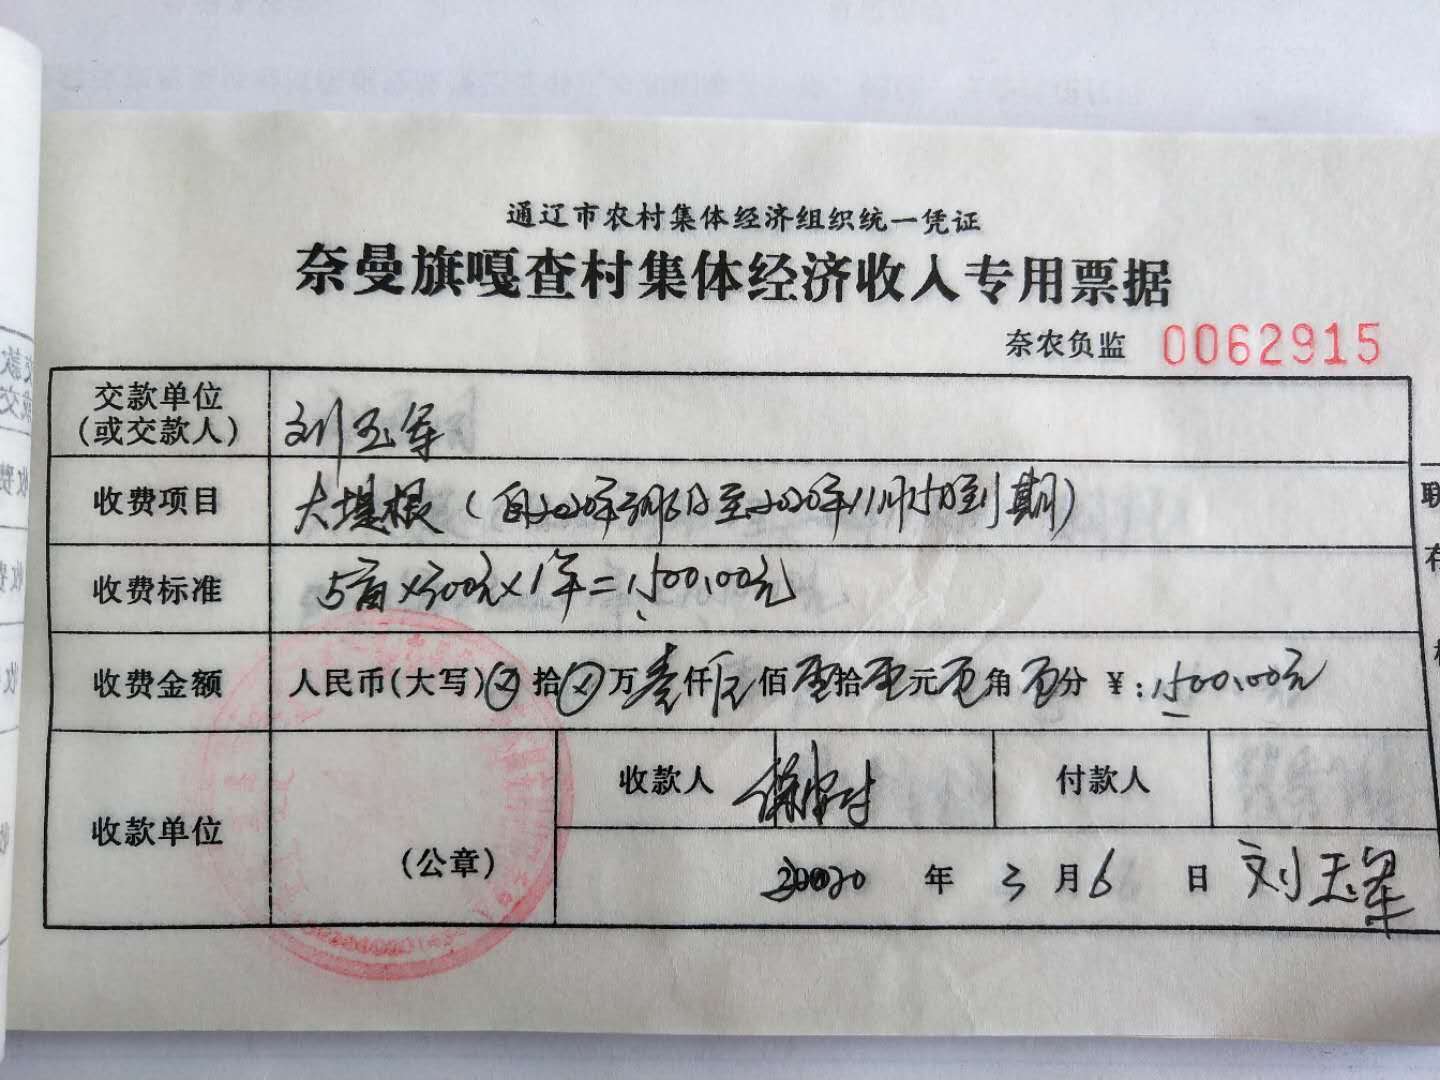 通辽市农村集体经济组织统一凭证
奈曼旗嘎查村集体经济收入专用票据
奈农负监 0062915
交款单位
(或交款人)
刘玉军
收费项目
大堤根(自2020年3月6日至2020年11月15日到期)
收费标准
5亩×300元×1年=1500.00元
收费金额
人民币(大写)⊗拾⊗万壹仟伍佰零拾零元零角零分 ¥:1500.00元
收款单位
(公章)
收款人
付款人
2020年3月6日 刘玉军
联
存